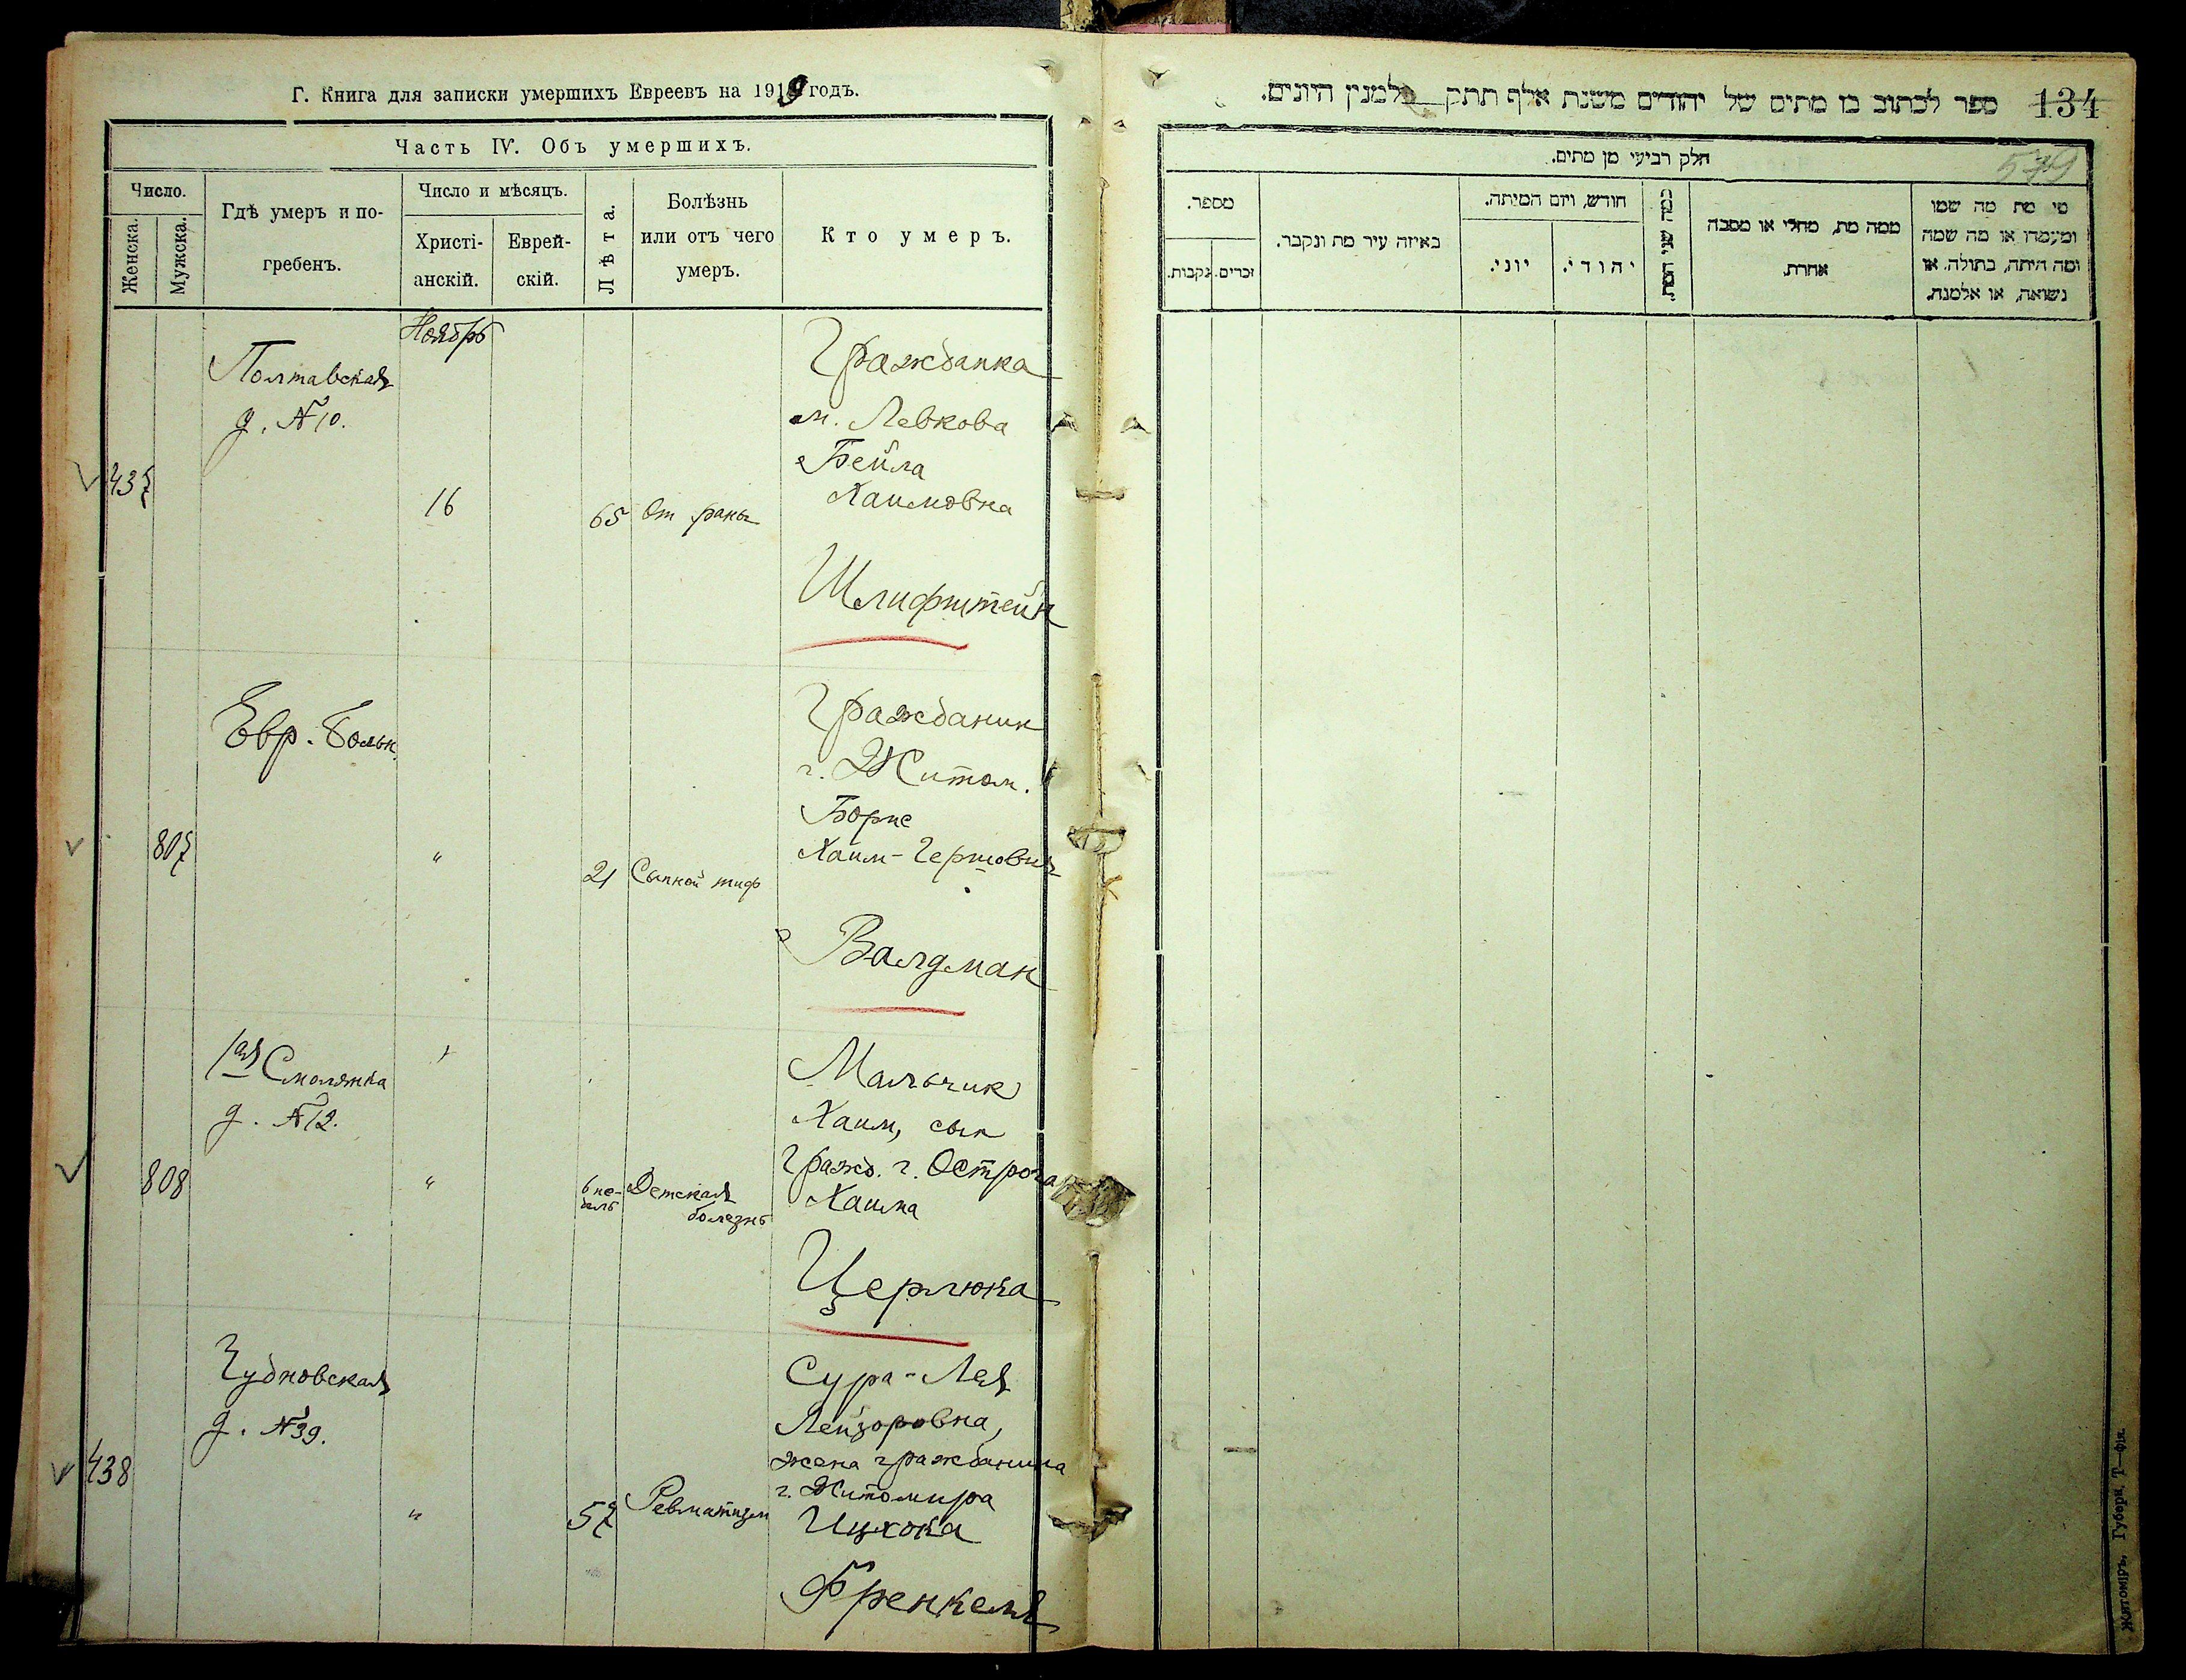 Г. Книга для записки умершихъ Евреевъ на 1919 годъ.
Часть IV. Объ умершихъ.
Число.
Женска.
Мужска.
Гдѣ умеръ и по-
гребенъ.
Число и мѣсяцъ.
Христі-
анскій.
Еврей-
скій.
Лѣта.
Болѣзнь
или отъ чего
умеръ.
Кто умеръ.
Ноябрь
437
Полтавская
д. № 10.
16
65
От раны
Гражданка
м. Левкова
Бейла
Хаимовна
Шлифштейн
807
Евр. Больн.
"
21
Сыпной тиф
Гражданин
г. Житом.
Борис
Хаим-Гершович
Валдман
808
1ая Смолянка
д. № 12.
"
6 не-
дель
Детская
болезнь
Мальчик
Хаим, сын
Гражд. г. Острога
Хаима
Церлюка
438
Чудновская
д. № 39.
"
57
Ревматизм
Сура-Лея
Лейзоровна,
жена гражданина
г. Житомира
Ицхока
Френкеля
134
ספר לכתוב בו מתים של יהודים משנת אלף תתק למנין היונים.
579
חלק רביעי מן מתים.
מספר.
נקבות.
זכרים.
באיזה עיר מת ונקבר.
חודש, ויום המיתה.
יוני.
יהודי.
כמה שני המת.
ממה מת, מחלי או מסבה
אחרת.
מי מת מה שמו
ומעמדו או מה שמה
ומה היתה, בתולה. או
נשואה, או אלמנה.
Житоміръ, Губерн. Т—фія.